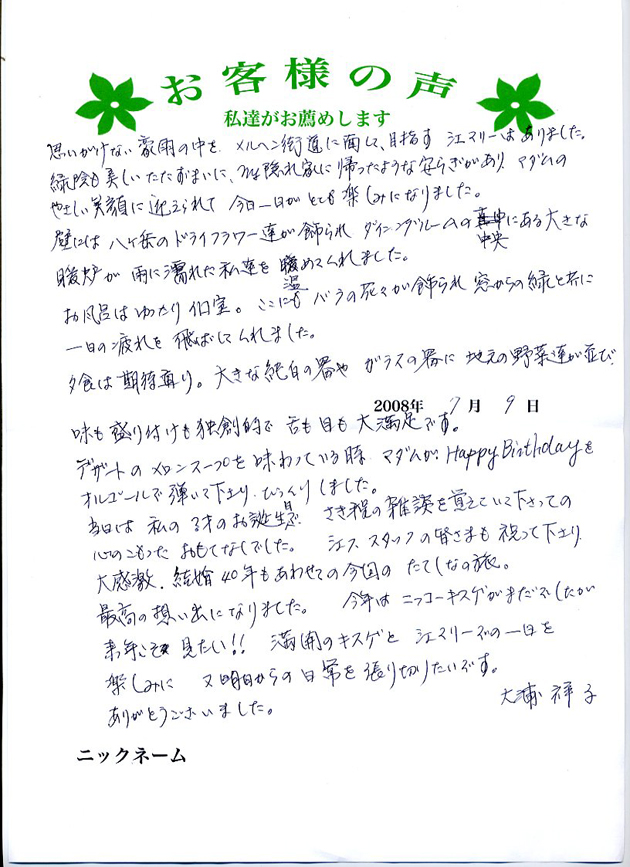 お客様の声
私達がお薦めします
思いがけない豪雨の中を メルヘン街道に面して、目指す 江マリーはありました。
緑陰も美しいたたずまいに、隠れ家に帰ったような安らぎがあり マダムの
やさしい笑顔に迎えられて 今日一日がとても楽しみになりました。
壁には 八ヶ岳のドライフラワー達が飾られ ダイニングルームの中央にある大きな
暖炉が 雨に濡れた私達を温めてくれました。
お風呂はゆったり個室。 ここにも バラの花々が飾られ 窓からの緑と共に
一日の疲れを 飛ばしてくれました。
夕食は期待通り。 大きな純白の器や ガラスの器に 地元の野菜達が並び
2008年 7月 9日
味も盛り付けも独創的で 舌も目も大満足です。
デザートのメロンスープを味わっている時 マダムが Happy Birthdayを
オルゴールで弾いて下さり びっくりしました。
当日は 私の 才のお誕生日で さき程の雑談を覚えていて下さっての
心のこもった おもてなしでした。 スタッフの皆さまも 祝って下さり
大感激。結婚40年もあわせての今回の たてしなの旅。
最高の想い出になりました。 今年は ニッコーキスゲがまだでしたが
来年こそ 見たい!! 満開のキスゲと 江マリーでの一日を
楽しみに 又明日からの日常を張り切りたいです。
ありがとうございました。
大浦 祥子
ニックネーム